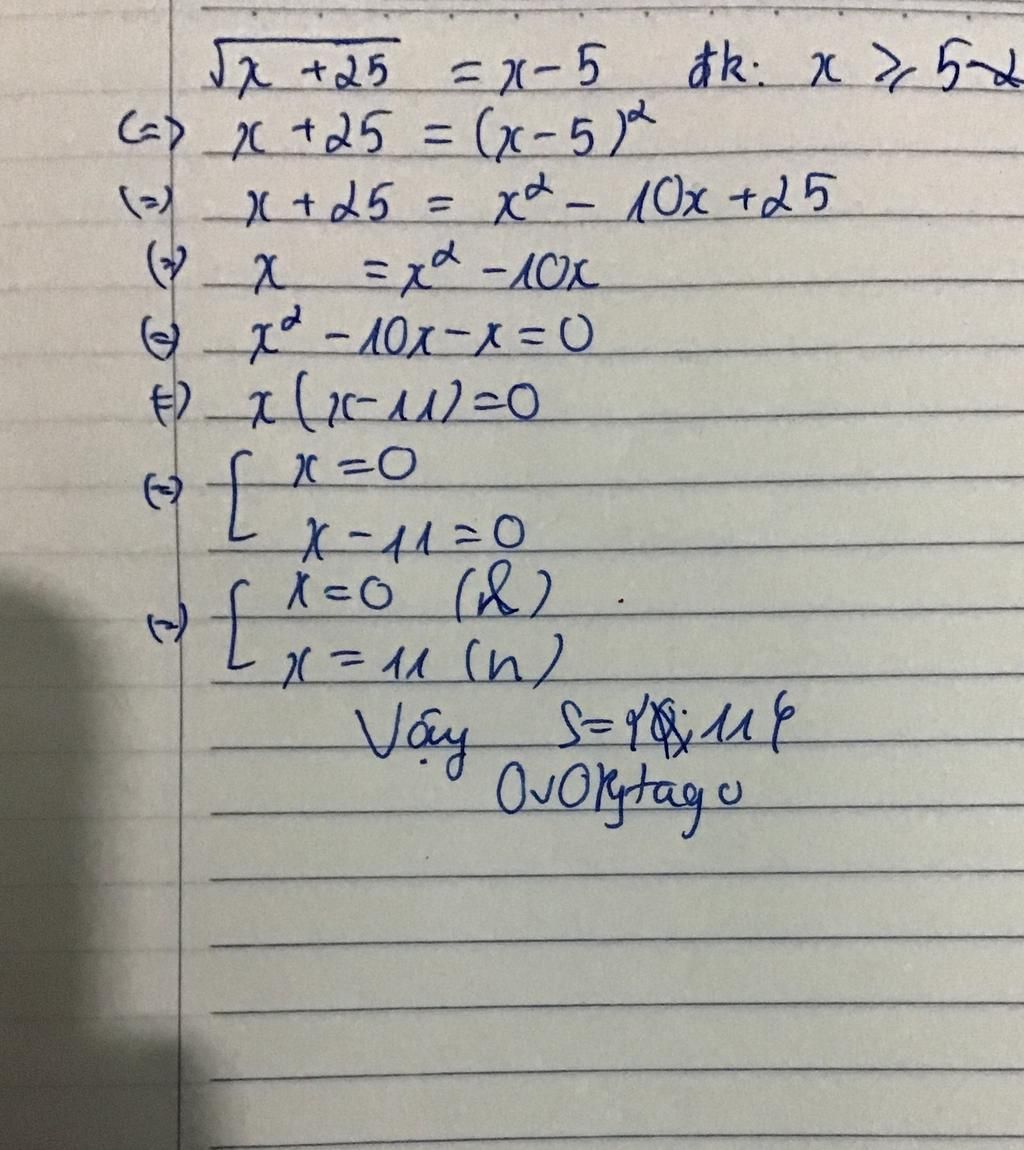 √x + 25 = x - 5 đk: x ≥ 5
(=) x + 25 = (x - 5)²
(=) x + 25 = x² - 10x + 25
(=) x = x² - 10x
(=) x² - 10x - x = 0
(=) x(x - 11) = 0
(=) [ x = 0
x - 11 = 0
(=) [ x = 0 (l)
x = 11 (n)
Vậy S = { 11 }